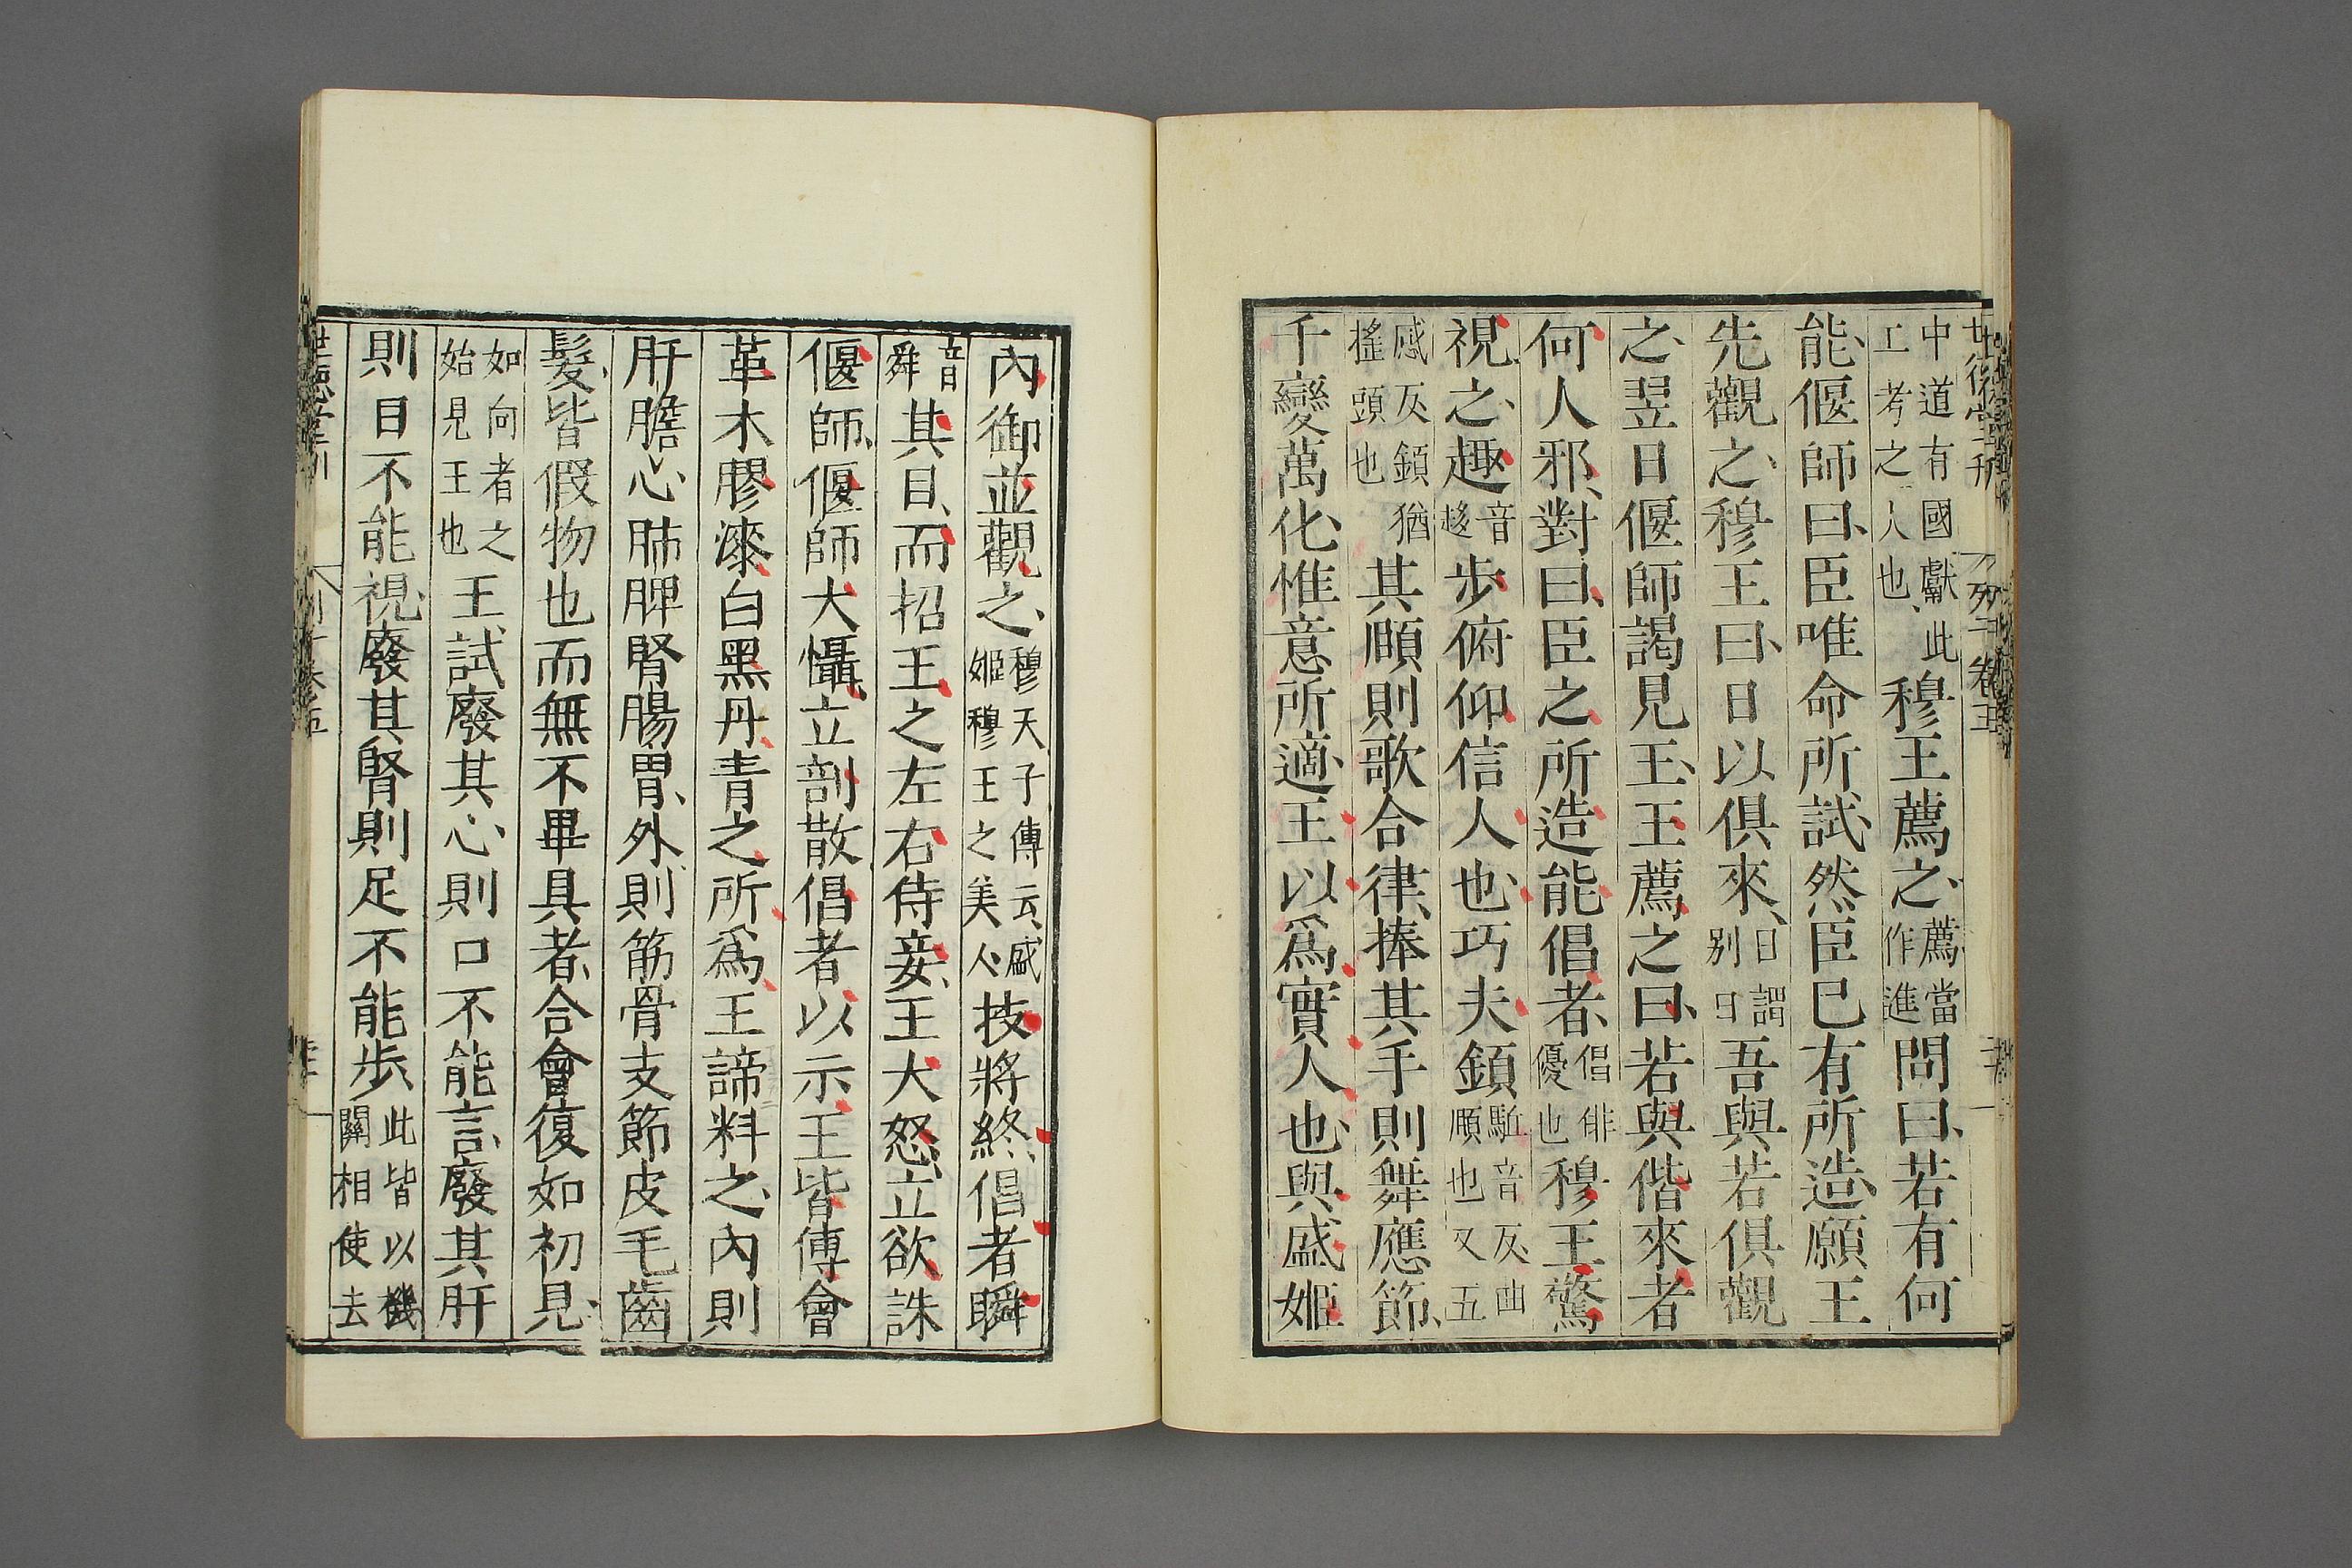 世德堂刊 列子卷五
中道有國獻此
工考之人也穆王薦之薦當作進問曰若有何
能偃師曰臣唯命所試然臣巳有所造願王
先觀之穆王曰日以俱來日謂别日吾與若俱觀
之翌日偃師謁見王王薦之曰若與偕來者
何人邪對曰臣之所造能倡者倡俳優也穆王驚
視之趣音趍步俯仰信人也巧夫鎮駈音反曲頤也又五
感反鎮猶搖頭也其頤則歌合律捧其手則舞應節
千變萬化惟意所適王以爲實人也與盛姬
內御並觀之穆天子傳云盛姬穆王之美人技將終倡者瞬
音舜其目而招王之左右侍妾王大怒立欲誅
偃師偃師大懾立剖散倡者以示王皆傅會
革木膠漆白黑丹青之所爲王諦料之內則
肝膽心肺脾腎腸胃外則筋骨支節皮毛齒
髮皆假物也而無不畢具者合會復如初見
如向者之始見王也王試廢其心則口不能言廢其肝
則目不能視廢其腎則足不能步此皆以機關相使去